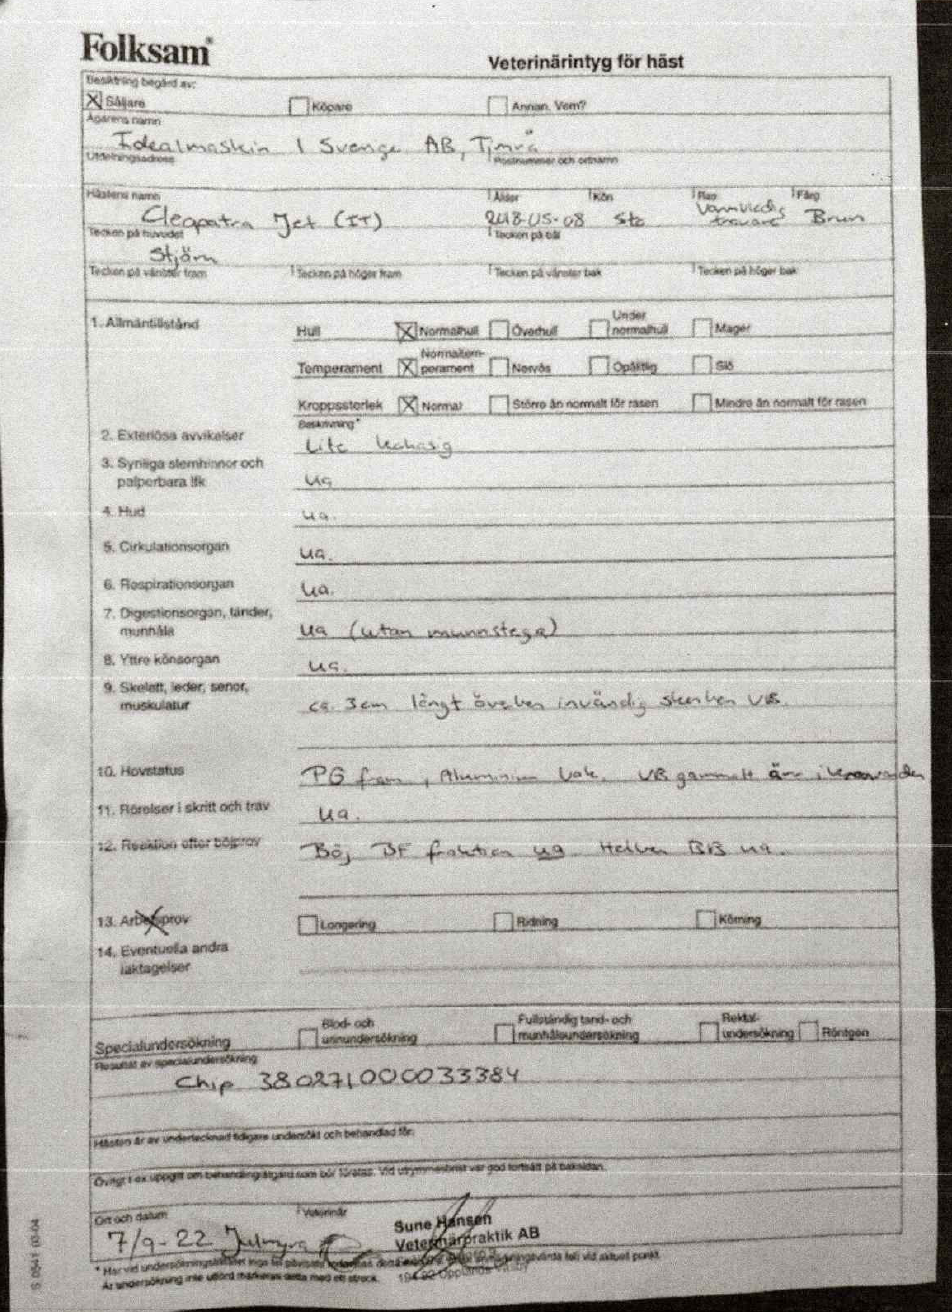 Folksam
Veterinärintyg för häst
Besiktning begärd av:
X Säljare Köpare Annan. Vem?
Ägarens namn
Idealmaskin I Sverige AB, Timrå
Utdelningsadress Postnummer och ortnamn
Hästens namn Ålder Kön Ras Färg
Cleopatra Jet (IT) 2018-05-08 Sto Varmblodig travare Brun
Tecken på huvudet Tecken på bål
Stjärn
Tecken på vänster fram Tecken på höger fram Tecken på vänster bak Tecken på höger bak
1. Allmäntillstånd Hull X Normalhull Överhull Under normalhull Mager
Temperament X Normaltemperament Nervös Opålitlig Slö
Kroppsstorlek X Normal Större än normalt för rasen Mindre än normalt för rasen
Beskrivning*
2. Exteriösa avvikelser Lite kohasig
3. Synliga slemhinnor och
palperbara lfk ua
4. Hud ua.
5. Cirkulationsorgan ua.
6. Respirationsorgan ua.
7. Digestionsorgan, tänder,
munhåla ua (utan munnstega)
8. Yttre könsorgan ua.
9. Skelett, leder, senor,
muskulatur ca. 3cm långt överben invändig skenben VB.
10. Hovstatus PG fram, Aluminium bak. VB gammalt ärr i kronranden
11. Rörelser i skritt och trav ua.
12. Reaktion efter böjprov Böj BF fraktion ua Helben BB ua.
13. Arbetsprov Longering Ridning Körning
14. Eventuella andra
iakttagelser
Specialundersökning Blod- och urinundersökning Fullständig tand- och munhåleundersökning Rektal-undersökning Röntgen
Resultat av specialundersökning
Chip 380271000033384
Hästen är av undertecknad tidigare undersökt och behandlad för:
Övrigt t ex uppgift om behandling/åtgärd som bör företas. Vid utrymmesbrist var god fortsätt på baksidan.
Ort och datum Veterinär
7/9-22 Julmyra
Sune Hansen
Veterinärpraktik AB
194 92 Upplands Väsby
* Har vid undersökningstillfället inga fel påvisats
Är undersökning inte utförd markeras detta med ett streck.
S 0541 03-04